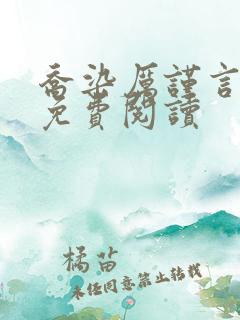 喬染厲謹言
免費閱讀
橘苗
未经同意禁止转载